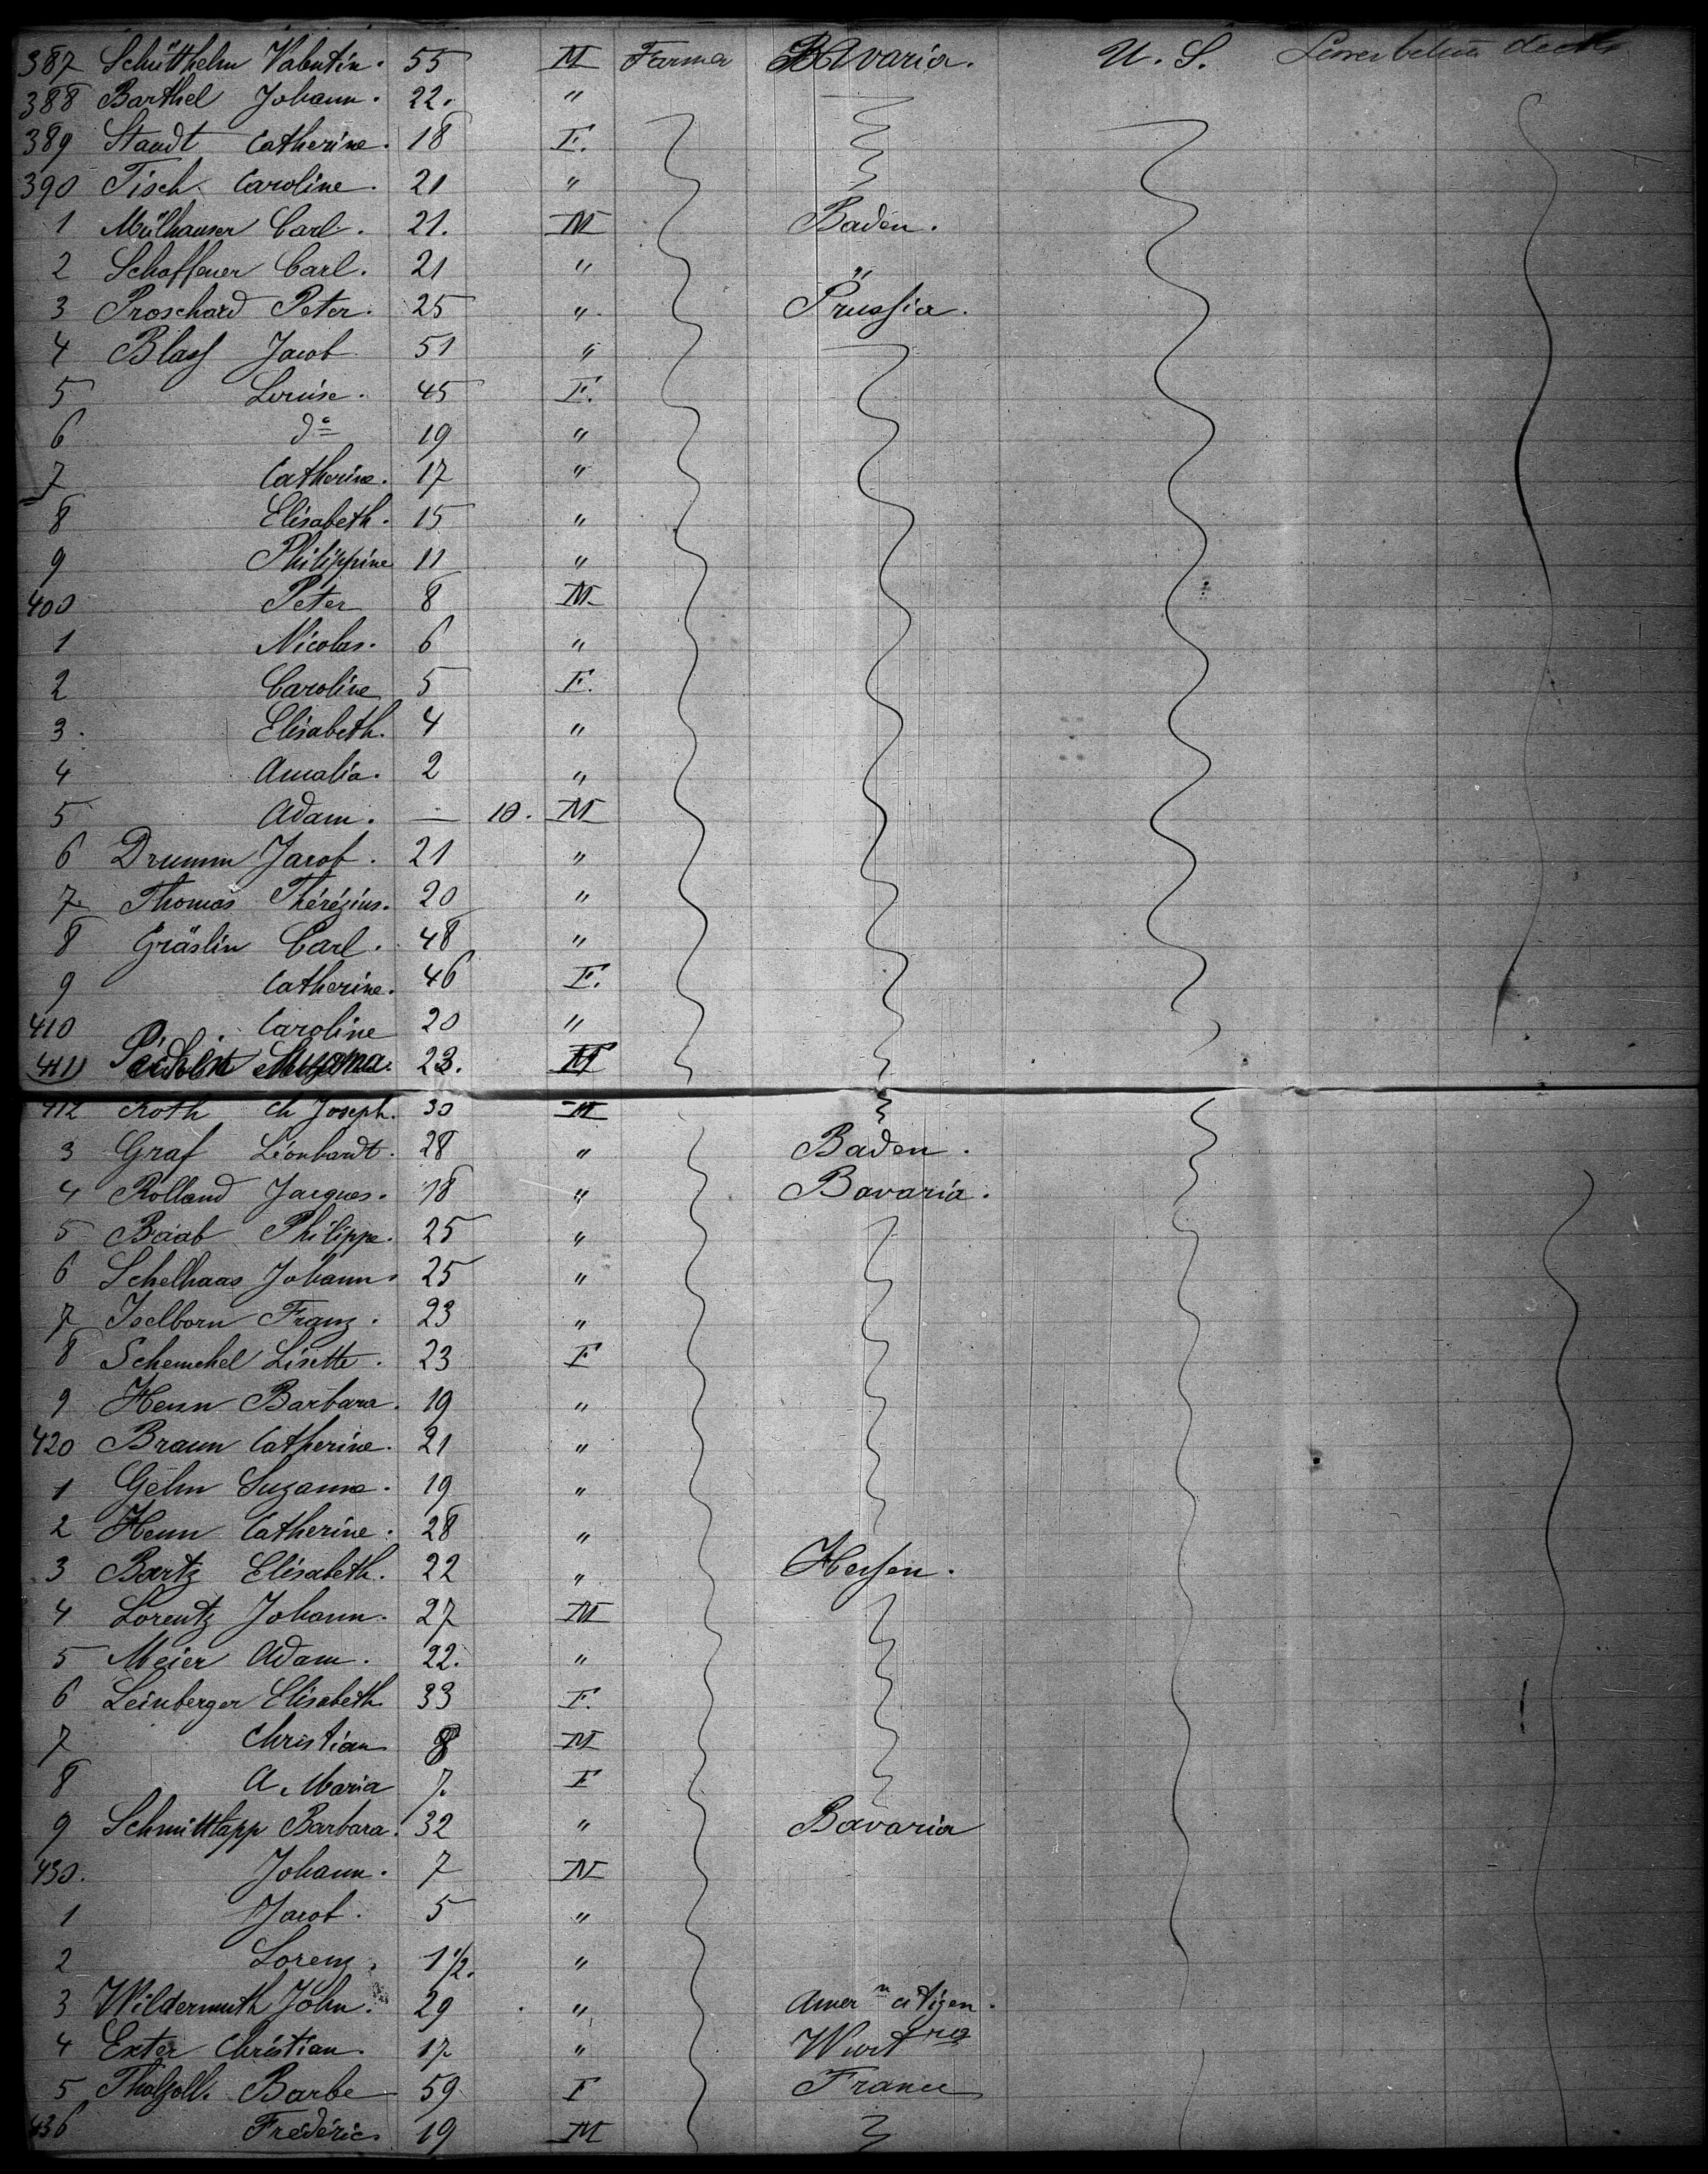 387 Schütthelm Valentin. 55 M Farmer Bavaria. U. S. Lower between decks
388 Barthel Johann. 22. "
389 Staudt Catherine. 18 F.
390 Tisch Caroline. 21 "
1 Mülhauser Carl. 21. M Baden.
2 Schaffener Carl. 21 " "
3 Proschard Peter. 25 " Prussia.
4 Blass Jacob 51 "
5 Louise. 45 F.
6 do 19 "
7 Catherine. 17 "
8 Elisabeth. 15 "
9 Philippine 11 "
400 Peter 8 M
1 Nicolas. 6 "
2 Caroline 5 F.
3. Elisabeth. 4 "
4 Amalia. 2 "
5 Adam. — 10. M
6 Drumm Jacob. 21 "
7 Thomas Thérézius. 20 "
8 Gräslin Carl. 48 "
9 Catherine. 46 F.
410 Caroline 20 "
411 23.
412 Roth Ch Joseph. 30 M
3 Graf Léonhardt. 28 " Baden.
4 Rolland Jacques. 18 " Bavaria.
5 Baab Philippe. 25 "
6 Schelhaas Johann. 25 "
7 Iselborn Franz. 23 "
8 Schemehel Lisette. 23 F
9 Henn Barbara. 19 "
420 Braun Catherine. 21 "
1 Gehm Suzanna. 19 "
2 Henn Catherine. 28 "
3 Bartz Elisabeth. 22 " Hessen.
4 Lorentz Johann. 27 M
5 Meier Adam. 22. "
6 Leinberger Elisabeth 33 F.
7 Christian 8 M
8 A. Maria 7. F
9 Schmittlapp Barbara. 32 " Bavaria
430. Johann. 7 M
1 Jacob. 5 "
2 Lorenz. 1 1/2. "
3 Wildermuth John. 29 " Amern citizen.
4 Exter Christian. 17 " Wurtrg
5 Barbe 59 F France
436 Frédéric 19 M